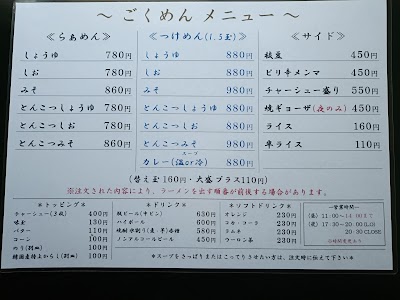 ～ ごくめん メニュー ～
≪らぁめん≫
しょうゆ 780円
しお 780円
みそ 860円
とんこつしょうゆ 780円
とんこつしお 780円
とんこつみそ 860円
≪つけめん(1.5玉)≫
しょうゆ 880円
しお 880円
みそ 980円
とんこつしょうゆ 880円
とんこつしお 880円
とんこつみそ 980円
スープ
カレー(温or冷) 880円
≪サイド≫
枝豆 450円
ピリ辛メンマ 450円
チャーシュー盛り 550円
焼ギョーザ(夜のみ) 450円
ライス 160円
半ライス 110円
(替え玉160円・大盛プラス110円)
※注文された内容により、ラーメンを出す順番が前後する場合があります。
＊トッピング＊
チャーシュー(3枚) 400円
味玉 130円
バター 110円
コーン 110円
のり(3枚) 110円
＊ドリンク＊
瓶ビール(サビン) 630円
ハイボール 600円
焼酎水割り(麦・芋)各種 580円
ノンアルコールビール 450円
＊ソフトドリンク＊
オレンジ 230円
コカ・コーラ 230円
ラムネ 230円
ウーロン茶 230円
―営業時間―
(昼) 11:00～14:00まで
(夜) 17:30～20:00(LO)
20:30 CLOSE
＊スープをさっぱりまたはこってりさせたい方は、注文時に伝えて下さい＊